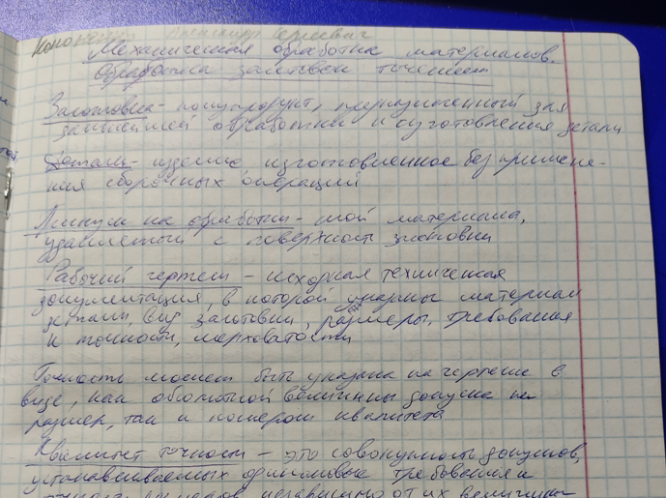 Кононенко Александр Сергеевич
Механическая обработка материалов.
Обработка заготовок точением
Заготовка - полупродукт, предназначенный для
дальнейшей обработки и изготовления детали
Деталь - изделие изготовленное без примене-
ния сборочных операций
на обработки - слой материала,
удаляемый с поверхност заготовки
Рабочий чертеж - исходная техническая
документация, в которой указаны материал
детали, вид заготовки, размеры, требования
к точности, шероховатости
Точность может быть указана на чертеже в
виде, как абсолютной величины допуска на
размер, так и номером квалитета
Квалитет точности - это совокупность допусков,
устанавливаемых одинаковые требования к
независимо от их величины